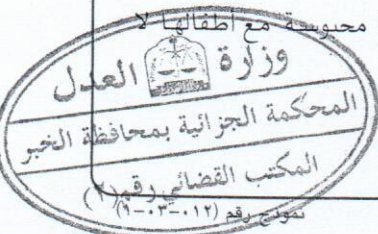 محبوسة مع أطفالها لا
وزارة العدل
المحكمة الجزائية بمحافظة الخبر
المكتب القضائي رقم (٢)
نموذج رقم (١٢-٠٣-٠١)